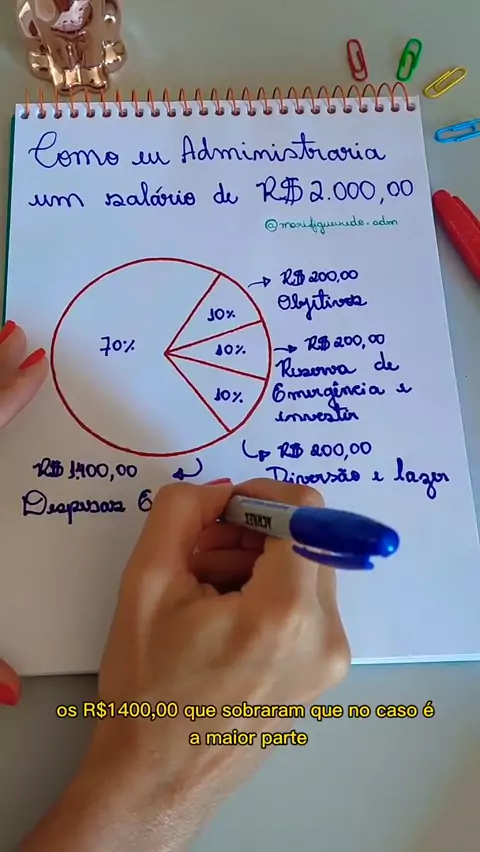 Como eu Administraria
um salário de R$ 2.000,00
@marifigueiredo.adm
R$ 200,00
Objetivos
10%
R$ 200,00
10%
70%
Reserva de
Emergência e
investir
10%
R$ 200,00
Diversão e lazer
R$ 1.400,00
Despesas E
ACRILEX
os R$1400,00 que sobraram que no caso é
a maior parte